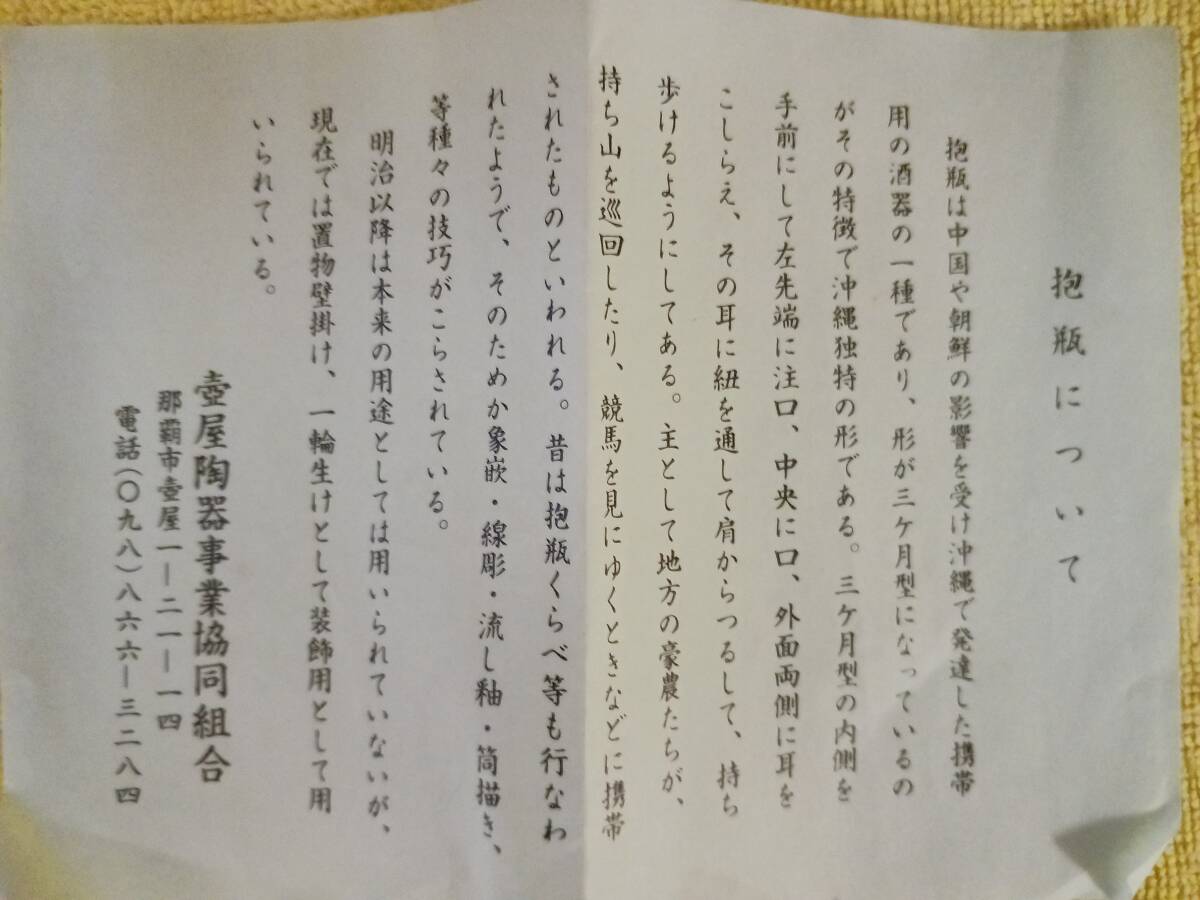 抱瓶について
抱瓶は中国や朝鮮の影響を受け沖縄で発達した携帯
用の酒器の一種であり、形が三ケ月型になっているの
がその特徴で沖縄独特の形である。三ケ月型の内側を
手前にして左先端に注口、中央に口、外面両側に耳を
こしらえ、その耳に紐を通して肩からつるして、持ち
歩けるようにしてある。主として地方の豪農たちが、
持ち山を巡回したり、競馬を見にゆくときなどに携帯
されたものといわれる。昔は抱瓶くらべ等も行なわ
れたようで、そのためか象嵌・線彫・流し釉・筒描き、
等種々の技巧がこらされている。
明治以降は本来の用途としては用いられていないが、
現在では置物壁掛け、一輪生けとして装飾用として用
いられている。
壺屋陶器事業協同組合
那覇市壺屋一ー二一ー一四
電話(〇九八)八六六ー三二八四